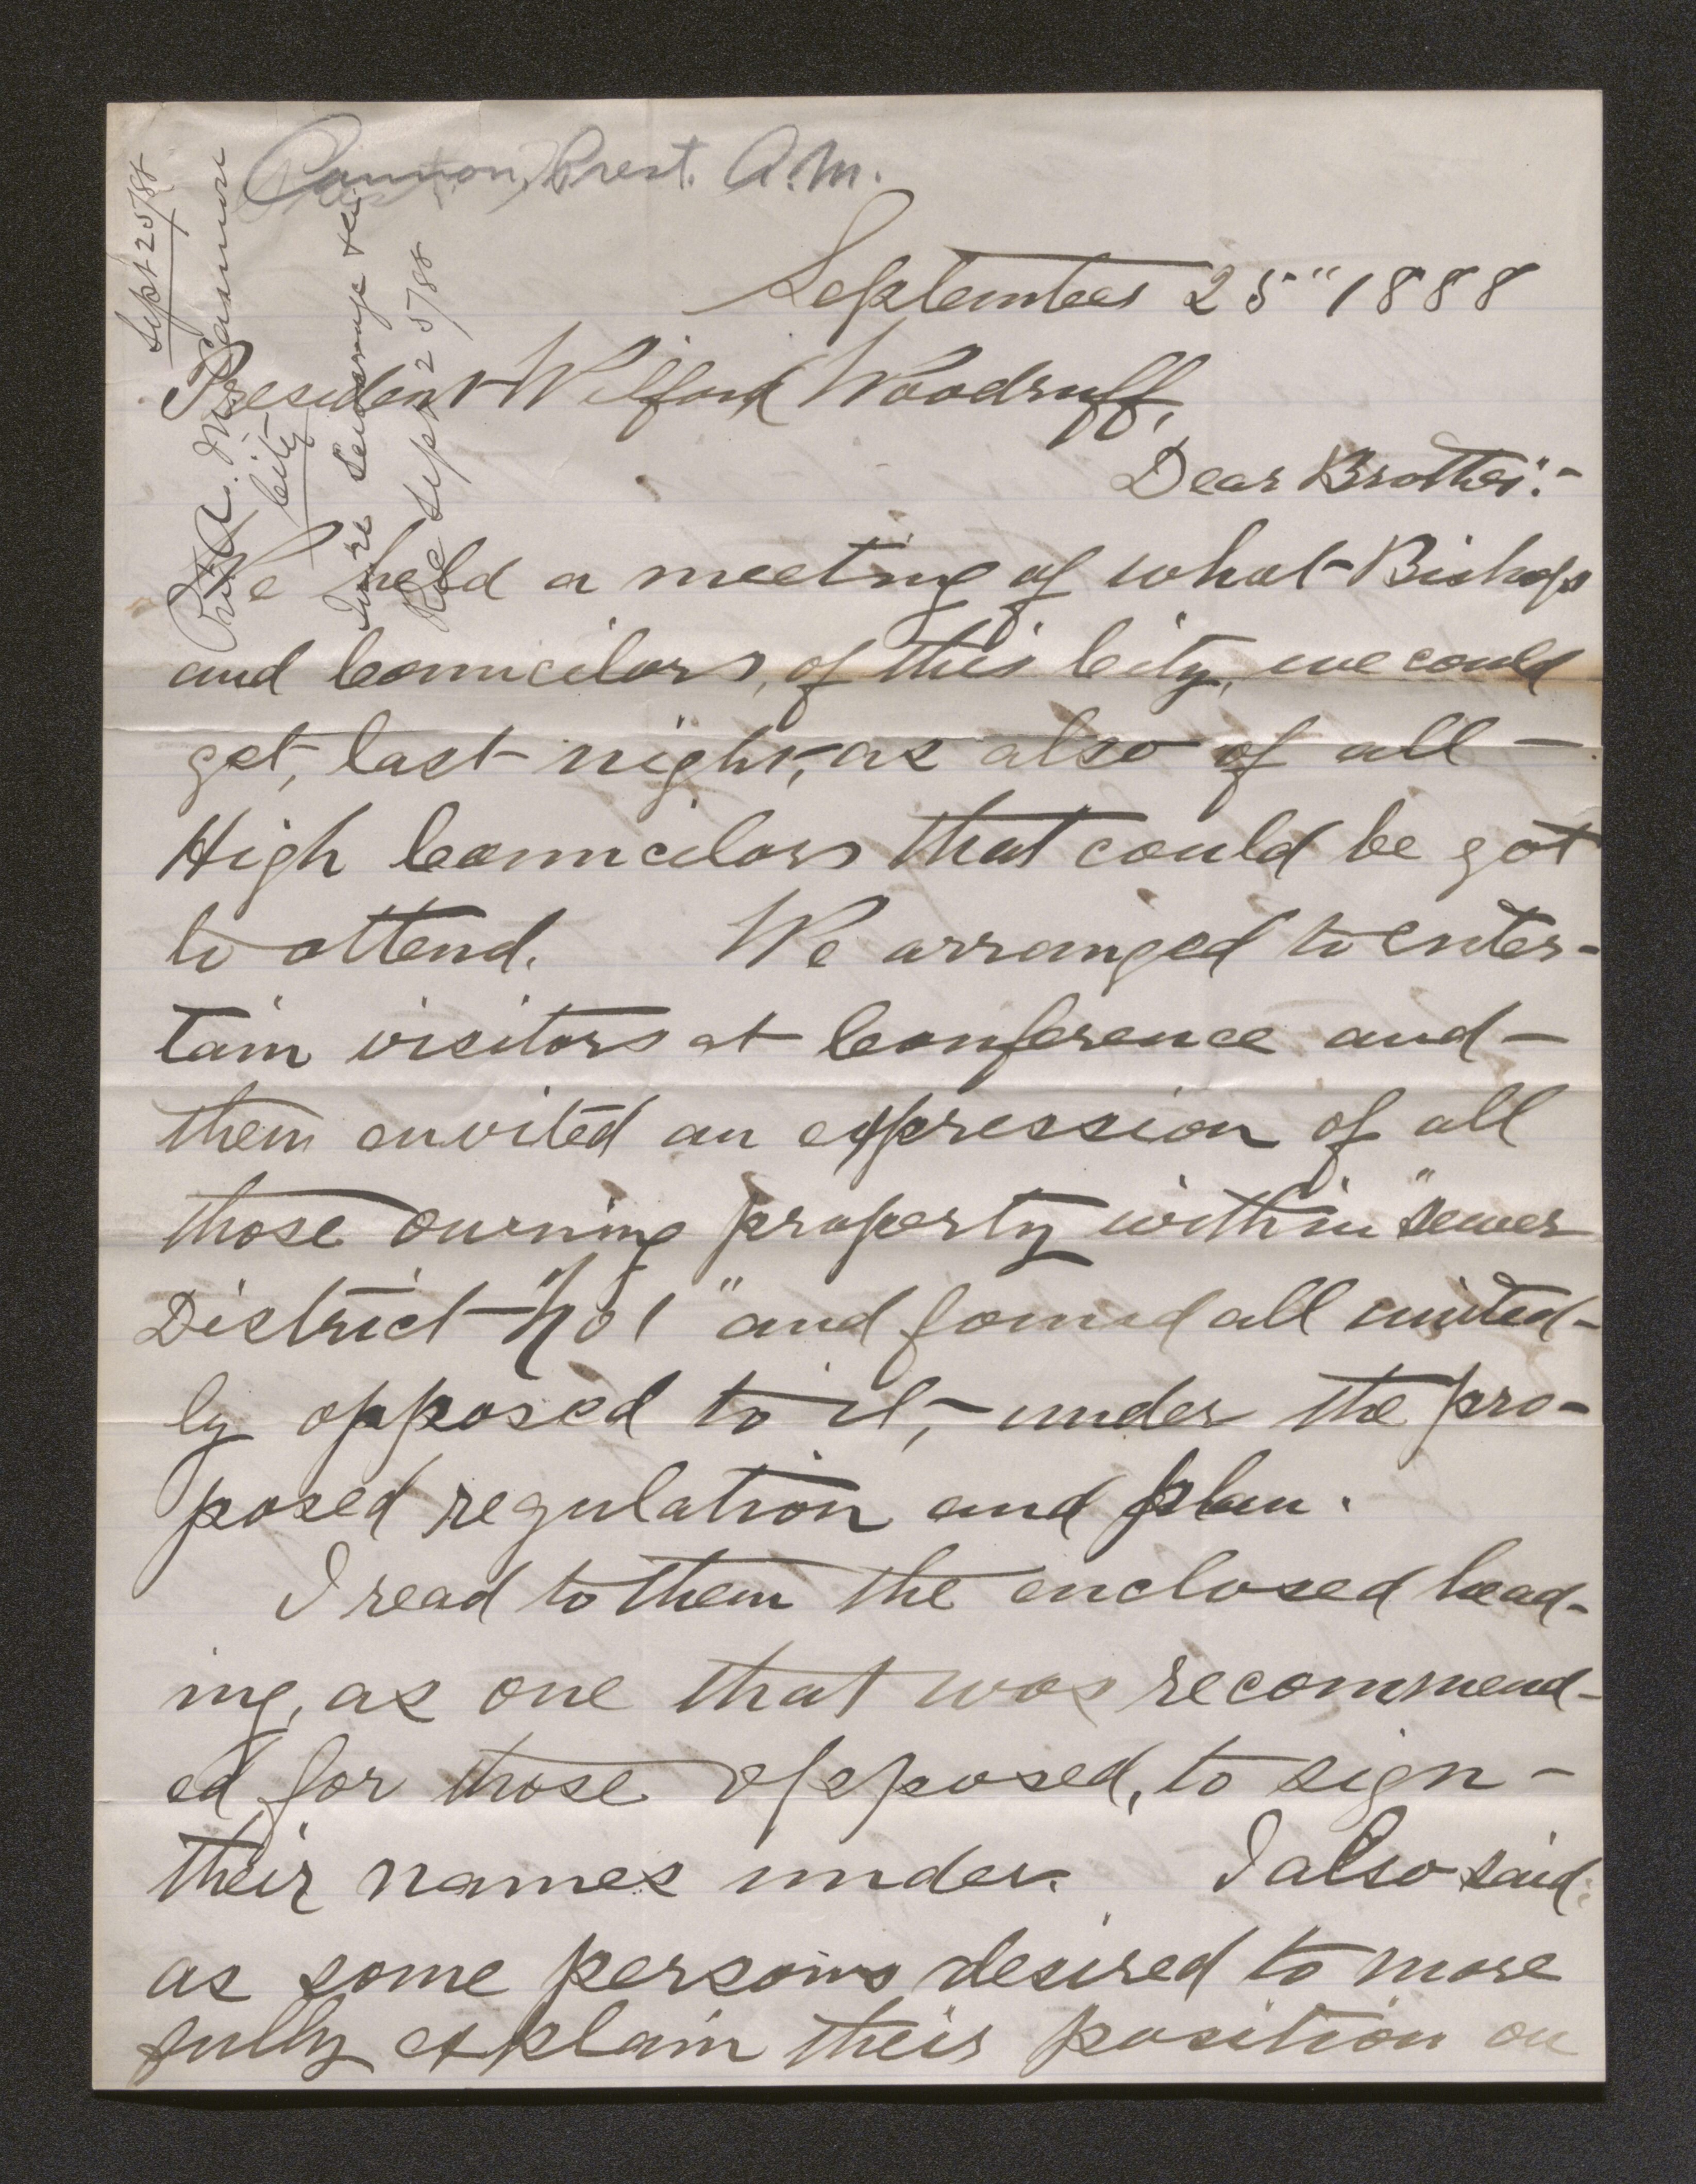 Cannon, Prest. A.M.
Sept 25/88
Prest A. M. Cannon
City
In re Sewerage &c
Rec Sept 25/88
September 25" 1888
President Wilford Woodruff,
Dear Brother:-
We held a meeting of what Bishops
and Councilors, of this City, we could
get, last night, as also of all -
High Councilors that could be got
to attend. We arranged to enter-
tain visitors at Conference and -
them envited an expression of all
those owning property within "sewer
District "No 1" and found all united-
ly opposed to it, - under the pro-
posed regulation and plan.
I read to them the enclosed head-
ing, as one that was recommend-
ed for those opposed, to sign -
their names under. I also said:
as some persons desired to more
fully explain their position on